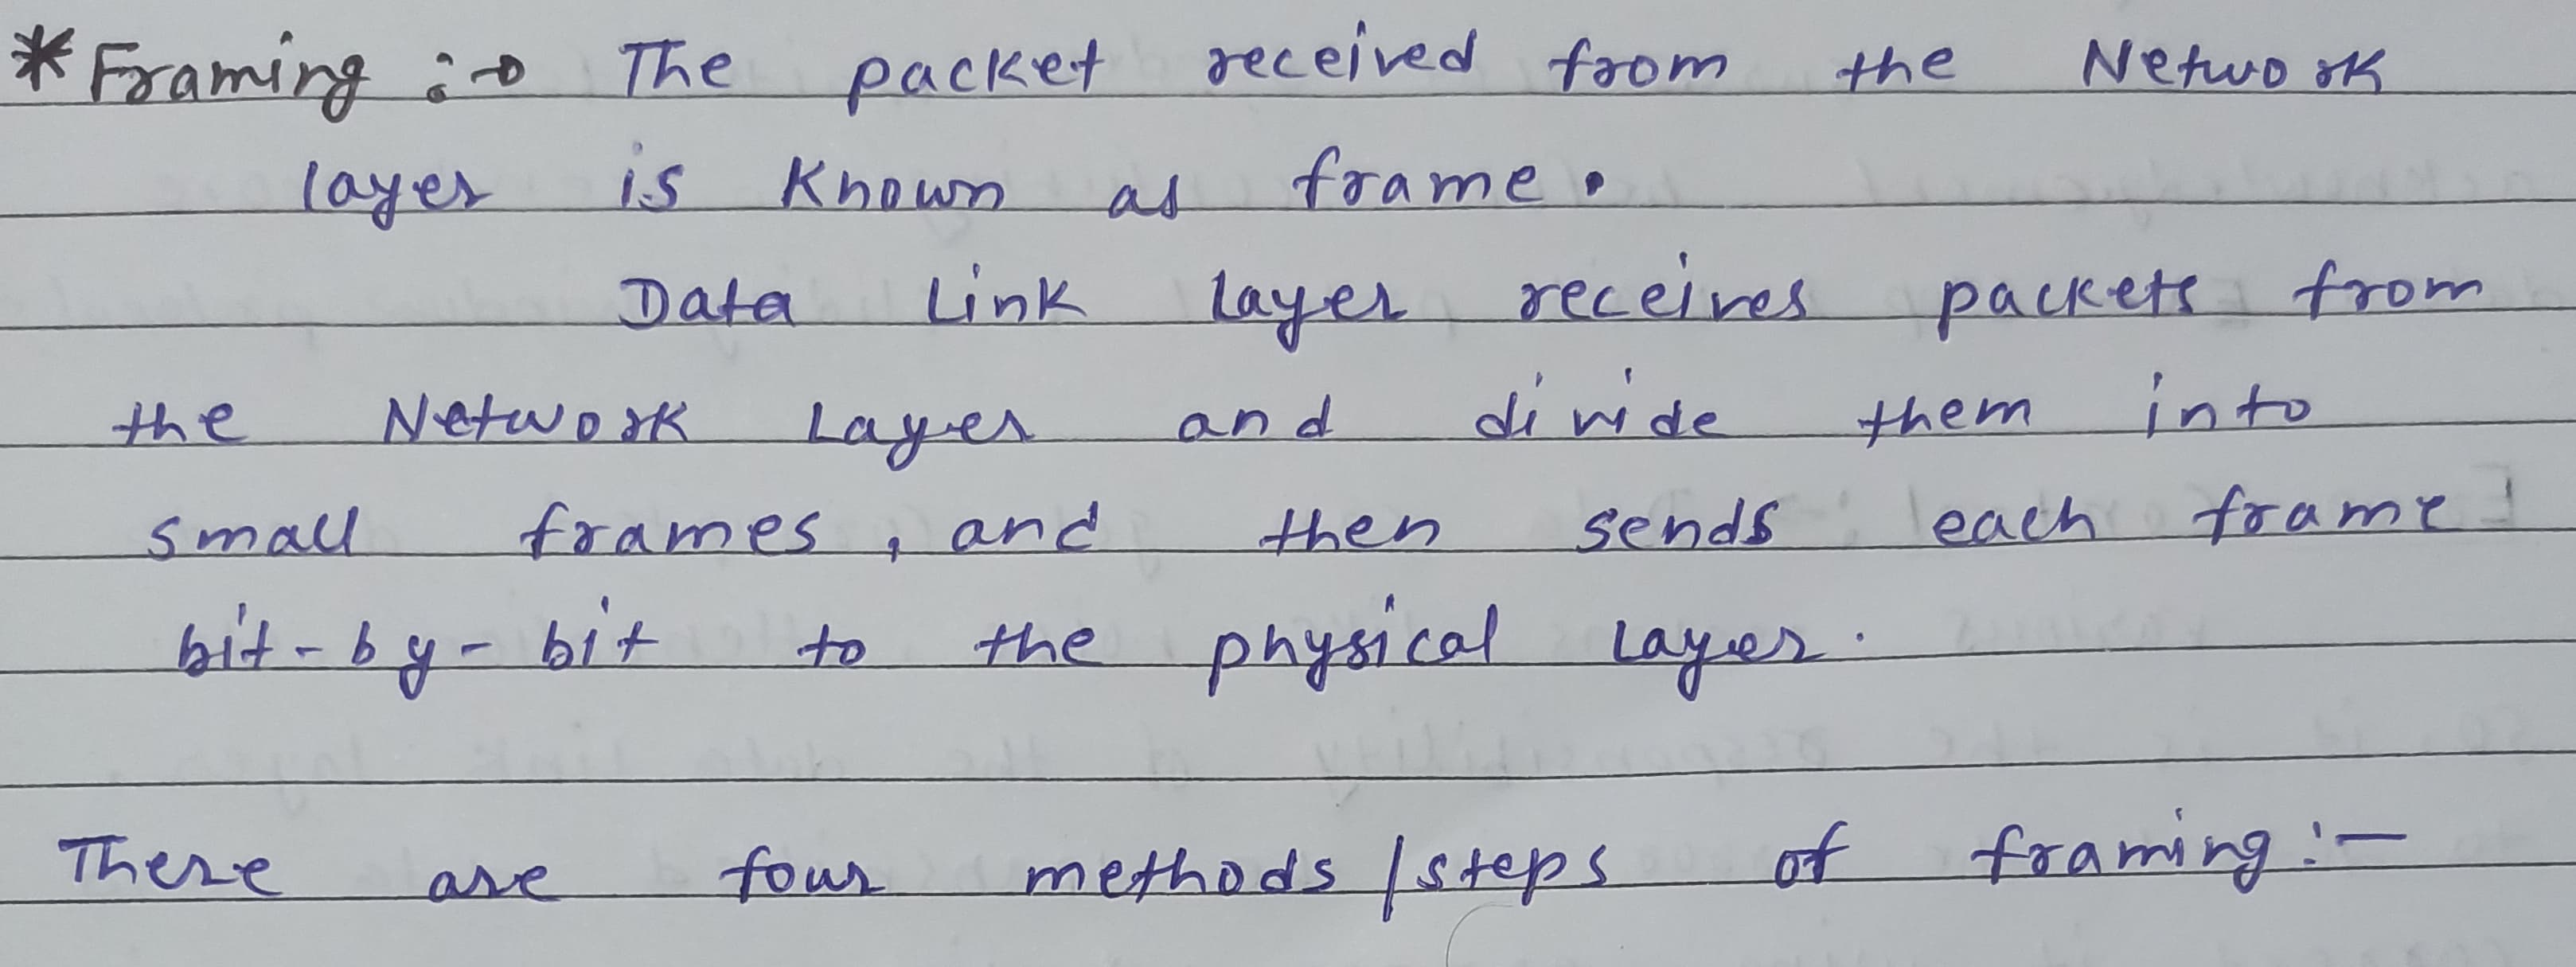 * Framing :→ The packet received from the Network
layer is known as frame.
Data Link layer receives packets from
the Network Layer and divide them into
small frames, and then sends each frame
bit-by-bit to the physical Layer.
There are four methods/steps of framing:-